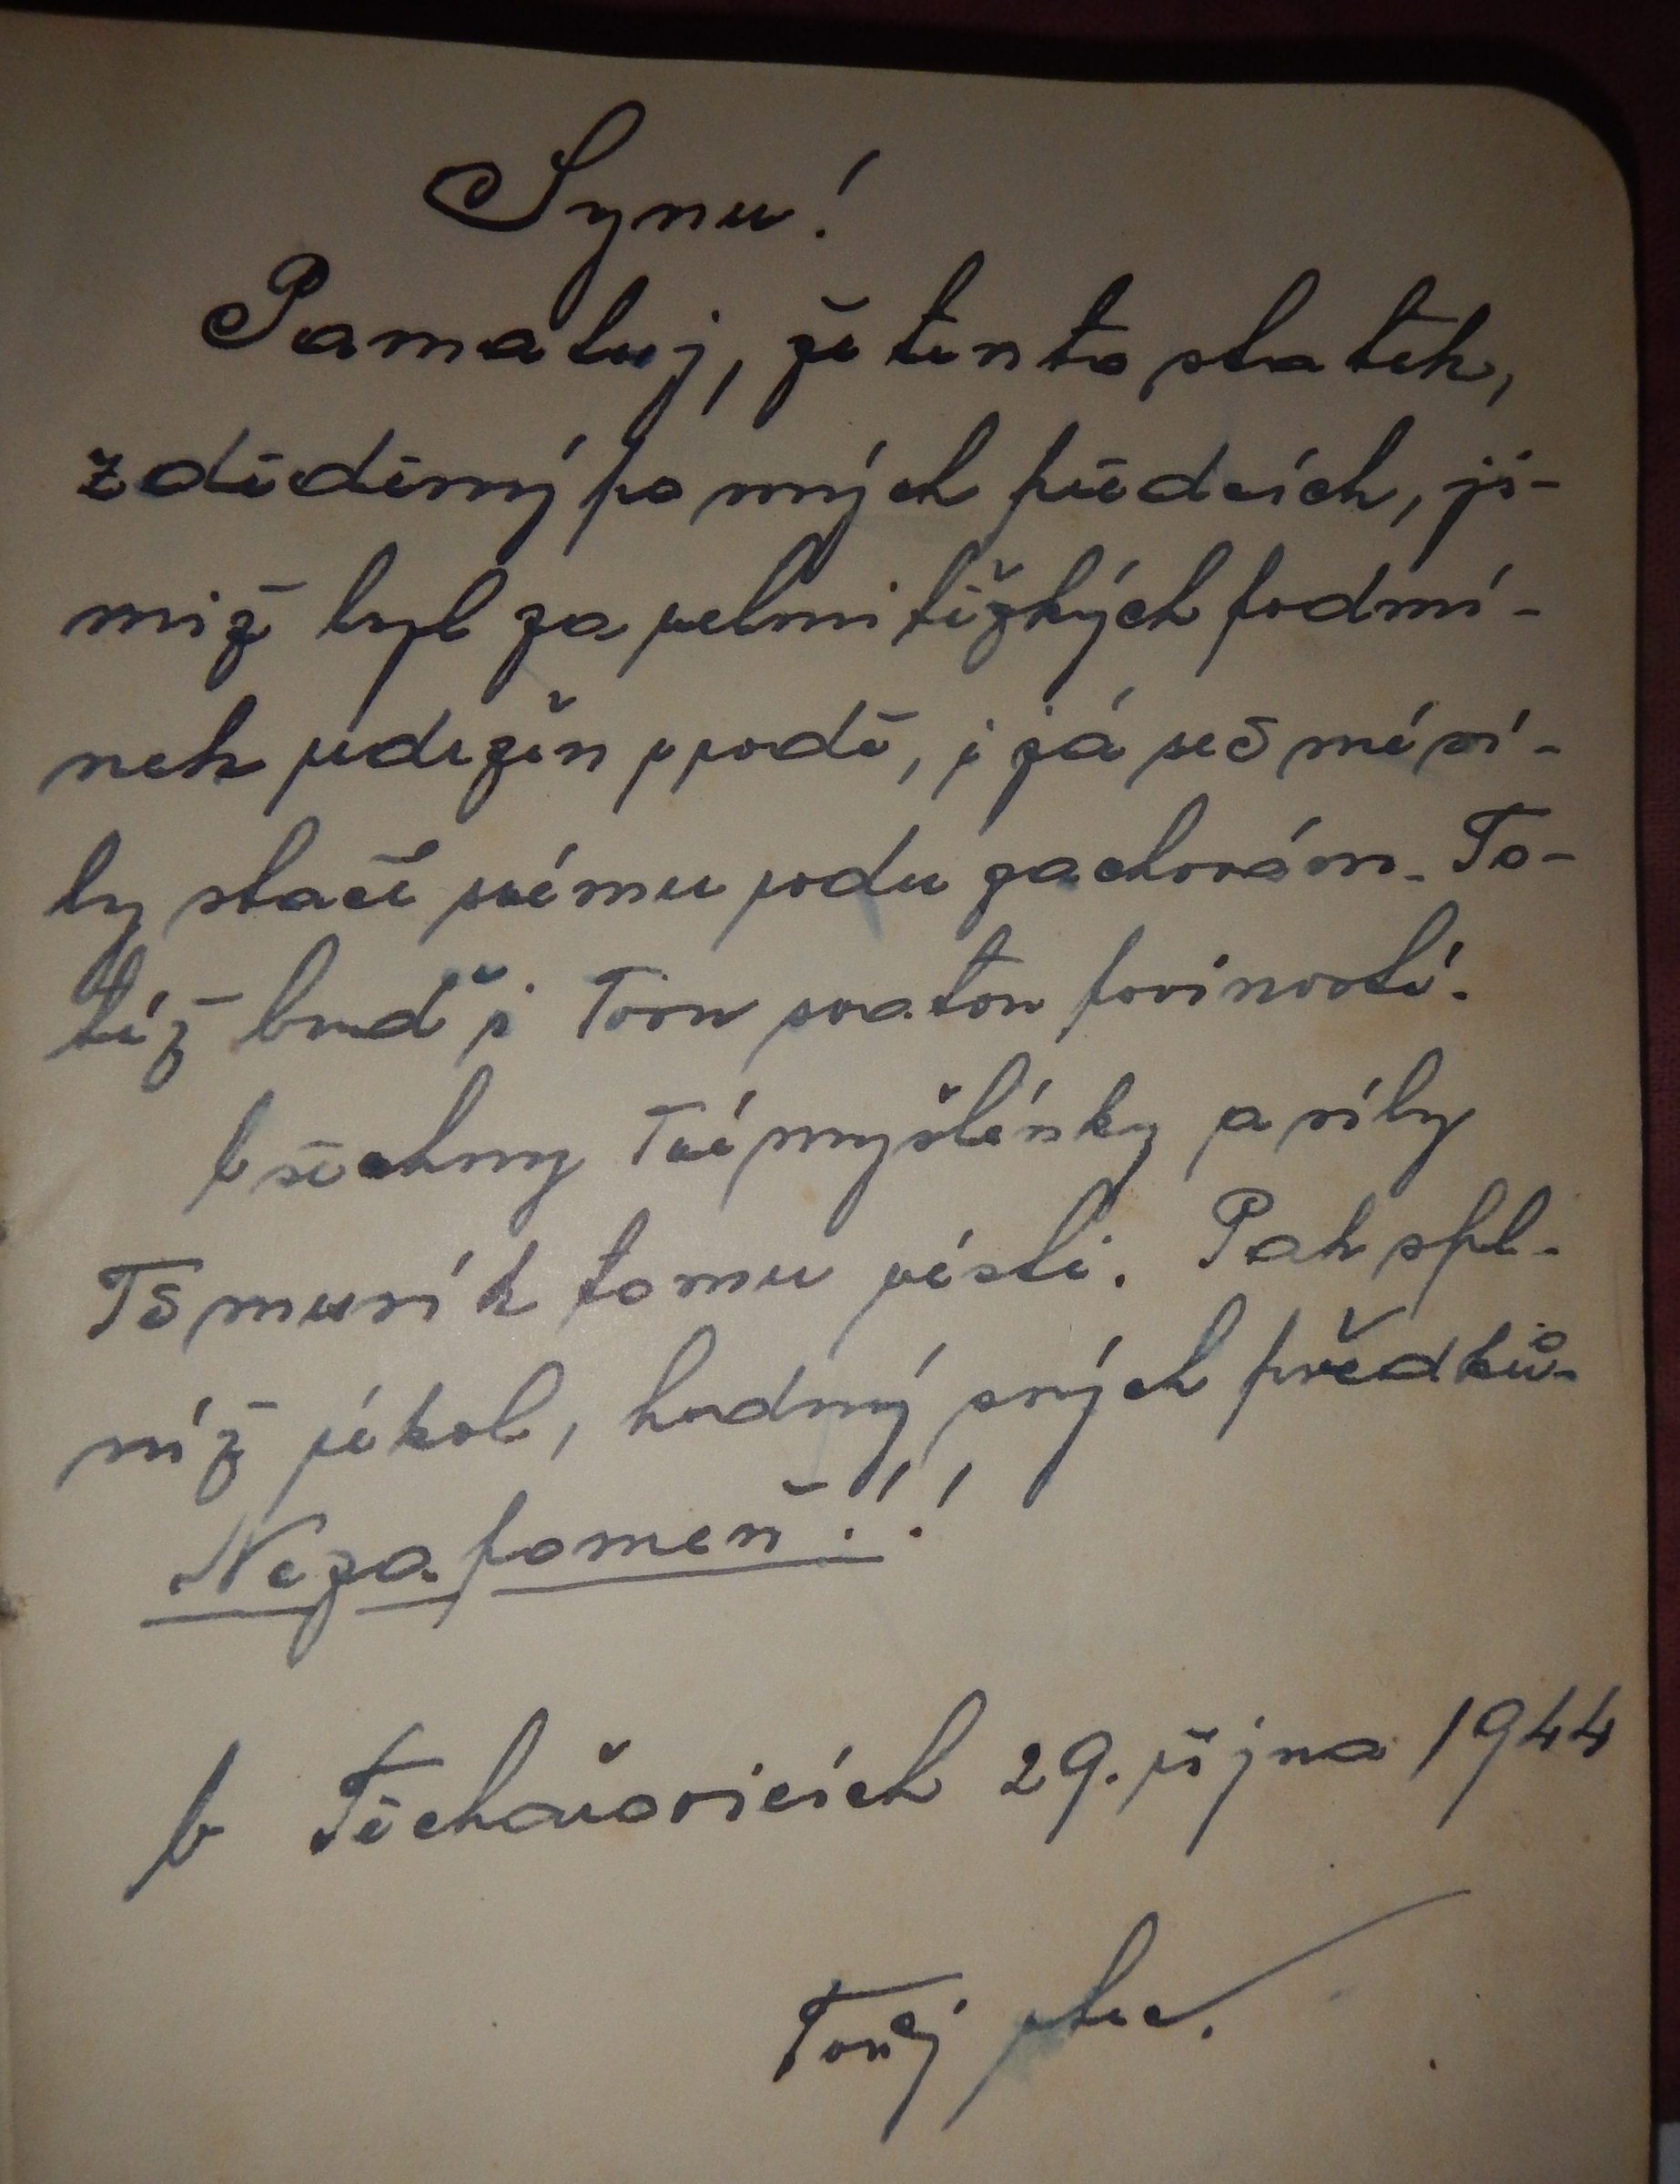 Synu!
Pamatuj, že tento statek,
zděděný po mých předcích, ji-
miž byl za velmi těžkých podmí-
nek udržen v rodě, i já seč mé sí-
ly stačí svému rodu zachovám. To-
též buď i Tvou svatou poviností.
Všechny Tvé myšlénky a síly
Tě musí k tomu vésti. Pak spl-
níš úkol, hodný svých předků.
Nezapomeň!!
V Těchařovicích 29. října 1944
Tvůj otec.